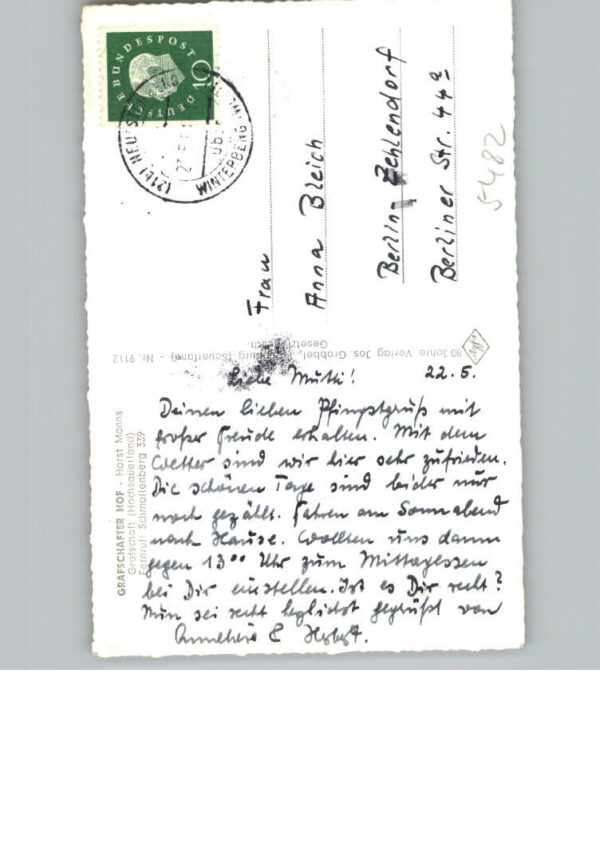 Liebe Mutti! 22.5.
Deinen lieben Pfingstgruß mit
großer Freude erhalten. Mit dem
Wetter sind wir hier sehr zufrieden.
Die schönen Tage sind leider nur
noch gezählt. Fahren am Sonnabend
nach Hause. Wollten uns dann
gegen 13⁰⁰ Uhr zum Mittagessen
bei Dir einstellen. Ist es Dir recht?
Nun sei recht herzlichst gegrüßt von
Frau
Anna Bleich
Berlin-Zehlendorf
Berliner Str. 44a
5482
GRAFSCHAFTER HOF - Horst Manns
Grafschaft (Hochsauerland)
Fernruf: Schmallenberg 339
80 Jahre Verlag Jos. Grobbel,
(Sauerland) - Nr. 9112
Gesetzl.
DEUTSCHE BUNDESPOST
WINTERBERG